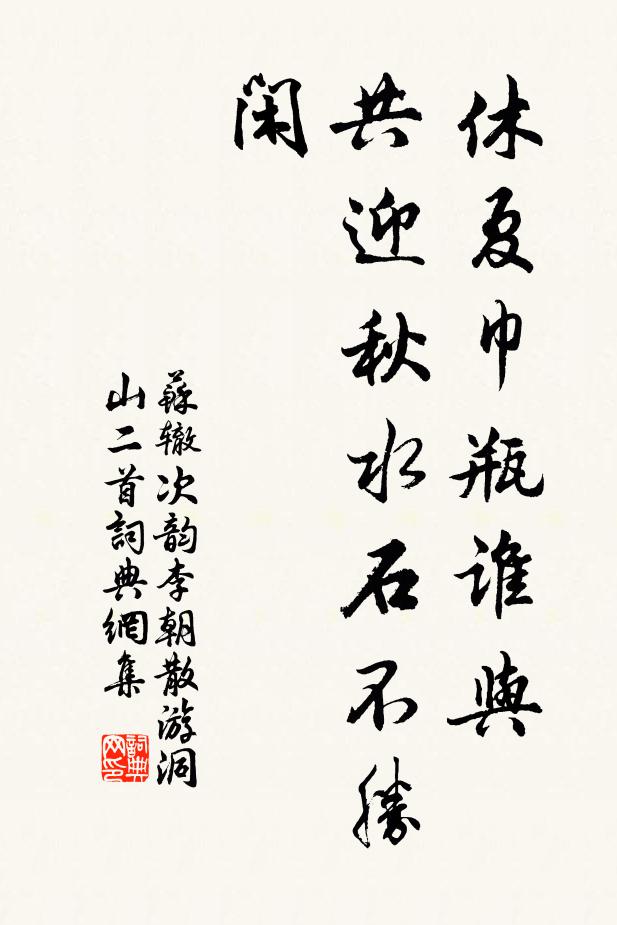 休夏巾瓶谁與
共迎秋水石不勝
闲
蘇辙次韵李朝散游洞
山二首詞典網集
詞典
网印